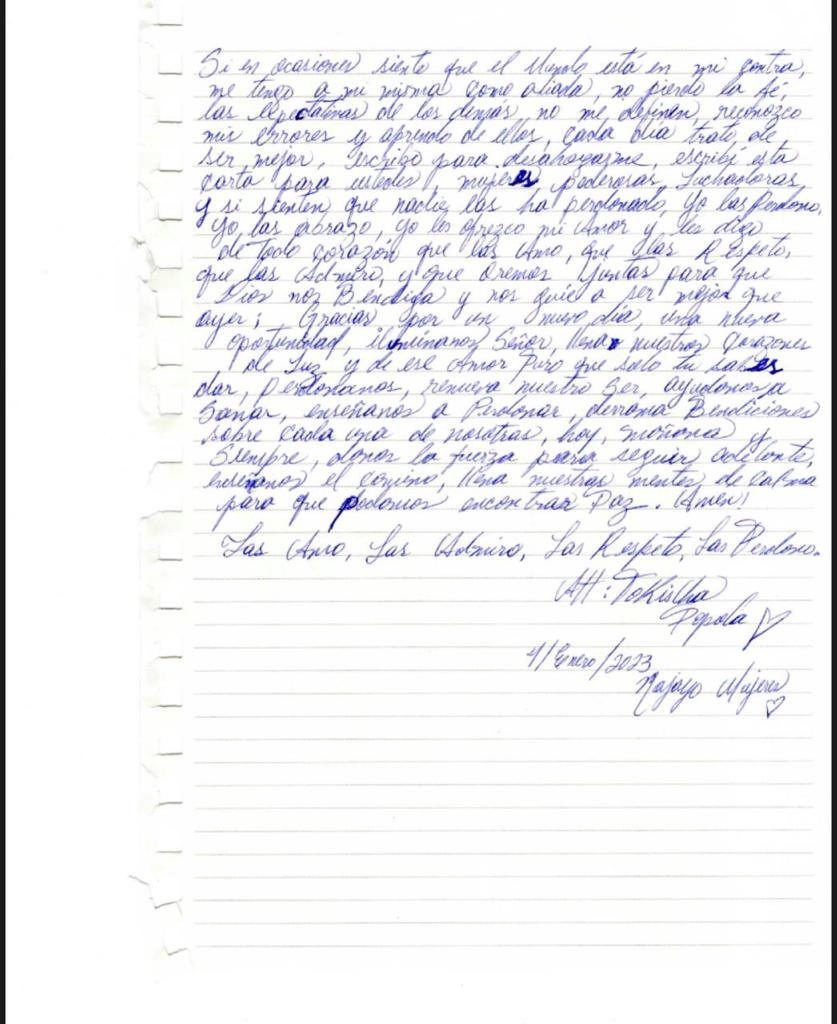 Si en ocasiones siento que el Mundo está en mi contra,
me tengo a mi misma como aliada, no pierdo la fé,
las expectativas de los demás no me definen, reconozco
mis errores y aprendo de ellos, cada dia trato de
ser mejor, escribo para desahogarme, escribí esta
carta para ustedes, mujeres poderosas, Luchadoras
y si sienten que nadie las ha perdonado, Yo las Perdono,
Yo, las abrazo, yo les ofrezco mi Amor y les digo
de Todo corazón que las Amo, que las Respeto,
que las Admiro, y que Oremos Juntas para que
Dios nos Bendiga y nos guíe a ser mejor que
ayer; Gracias por un nuevo dia, una nueva
oportunidad, ilumínanos Señor, llena nuestros Corazones
de Luz y de ese Amor Puro que solo tu sabes
dar, perdonanos, renueva nuestro Ser, ayudanos a
Sanar, enseñanos a Perdonar, derrama Bendiciones
sobre cada una de nosotras, hoy, mañana y
Siempre, danos la fuerza para seguir adelante,
enseñanos el camino, llena nuestras mentes de Calma
para que podamos encontrar Paz. Amen!
Las Amo, Las Admiro, Las Respeto, Las Perdono.
Att: Tokischa
Popola
4/Enero/2023
Najayo Mujeres